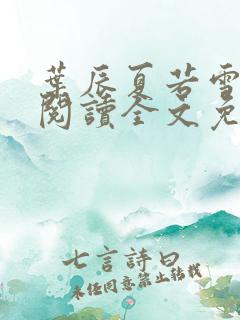 葉辰夏若雪
閱讀全文免
七言詩曰
未经同意禁止转载